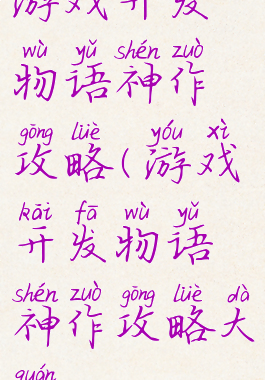 游戏开发
wù yǔ shén zuò
物语神作
gōng lüè yóu xì
攻略(游戏
kāi fā wù yǔ
开发物语
shén zuò gōng lüè dà
神作攻略大
quán